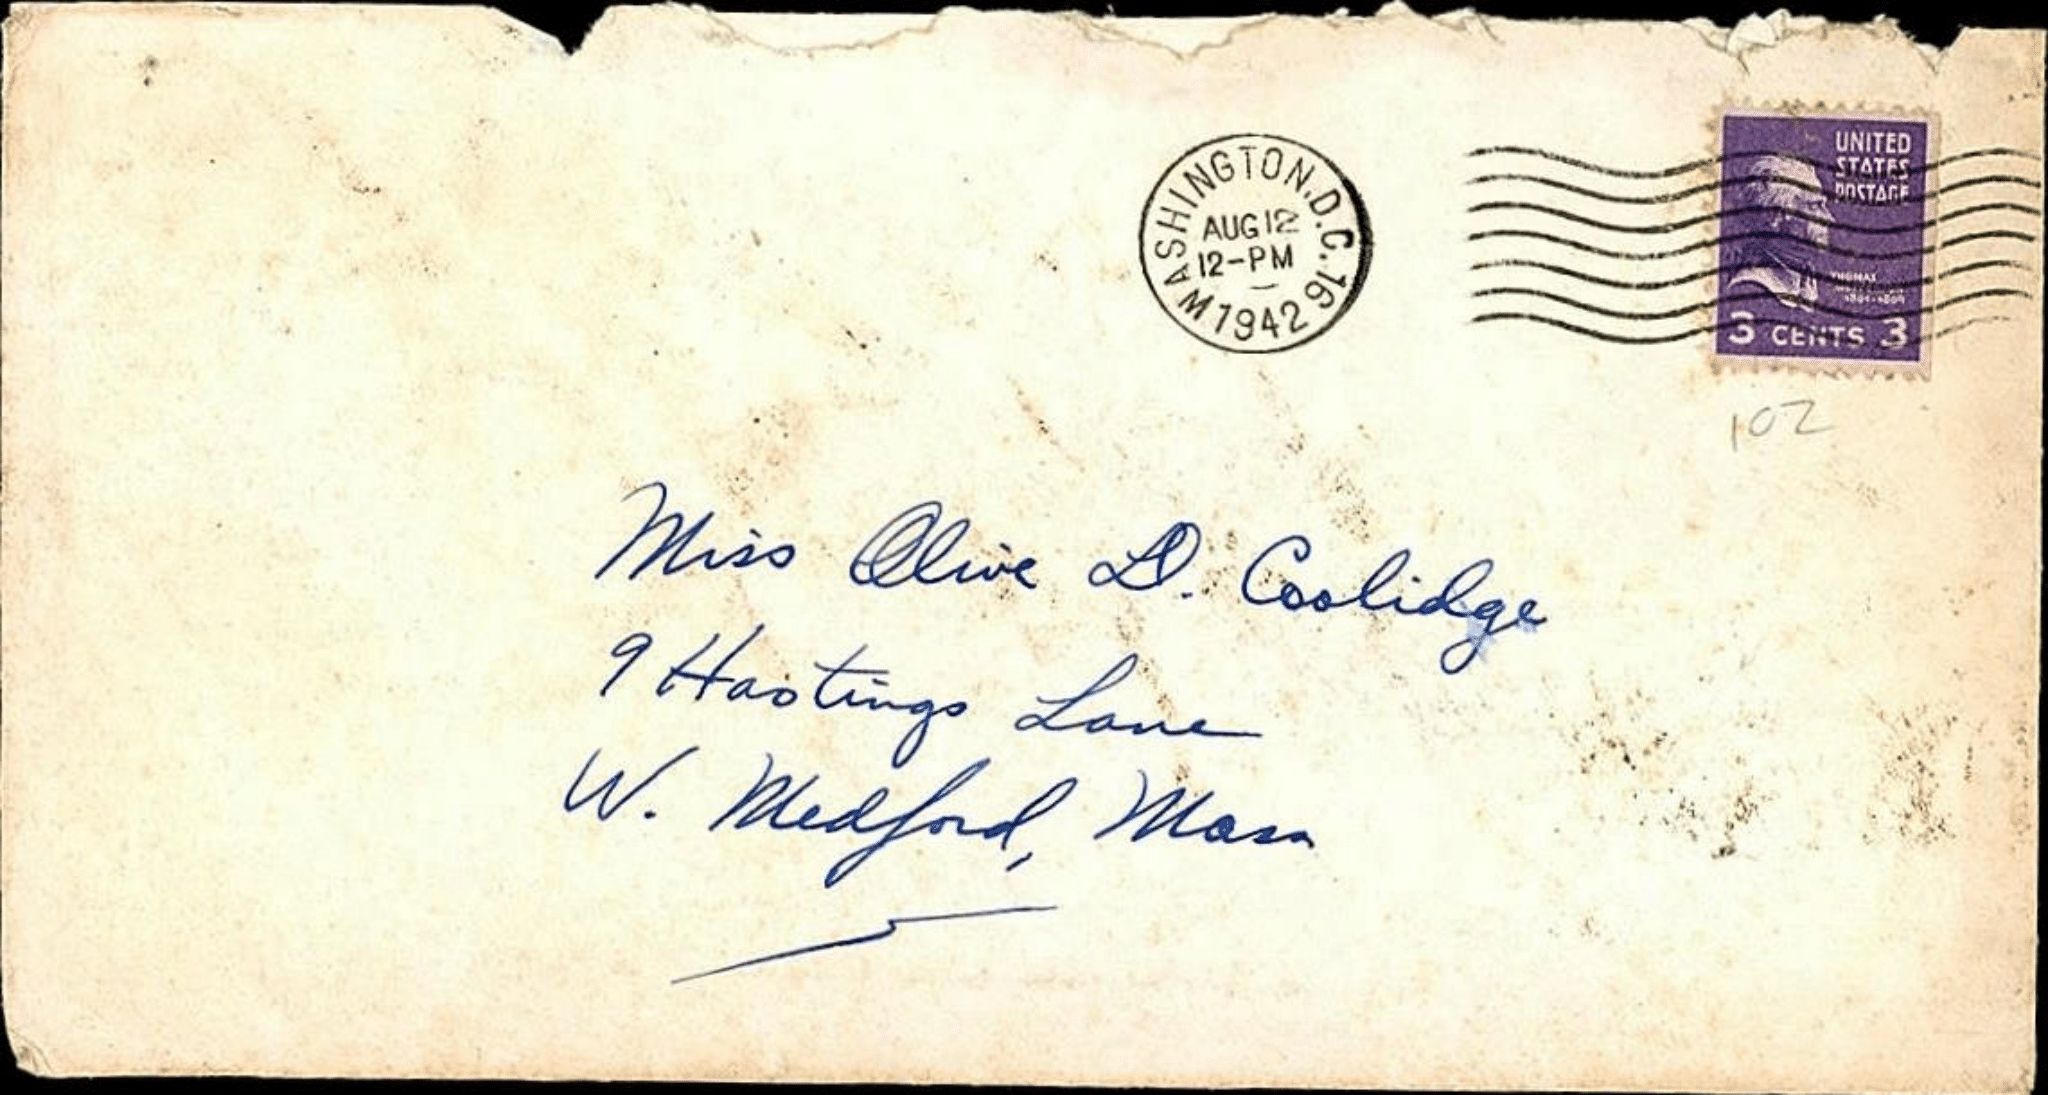 WASHINGTON, D.C. 16
AUG 12
12-PM
1942
UNITED
STATES
POSTAGE
THOMAS
1801-1809
3 CENTS 3
102
Miss Olive D. Coolidge
9 Hastings Lane
W. Medford, Mass